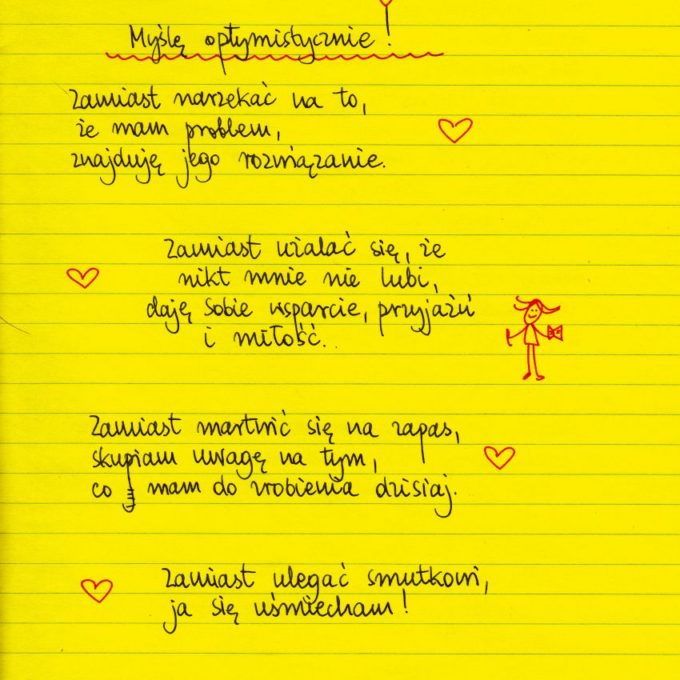 Myślę optymistycznie!
Zamiast narzekać na to,
że mam problem,
znajduję jego rozwiązanie.
Zamiast użalać się, że
nikt mnie nie lubi,
daję sobie wsparcie, przyjaźń
i miłość.
Zamiast martwić się na zapas,
skupiam uwagę na tym,
co mam do zrobienia dzisiaj.
Zamiast ulegać smutkowi,
ja się uśmiecham!